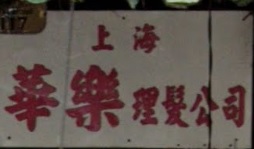 117
上海
華樂理髮公司